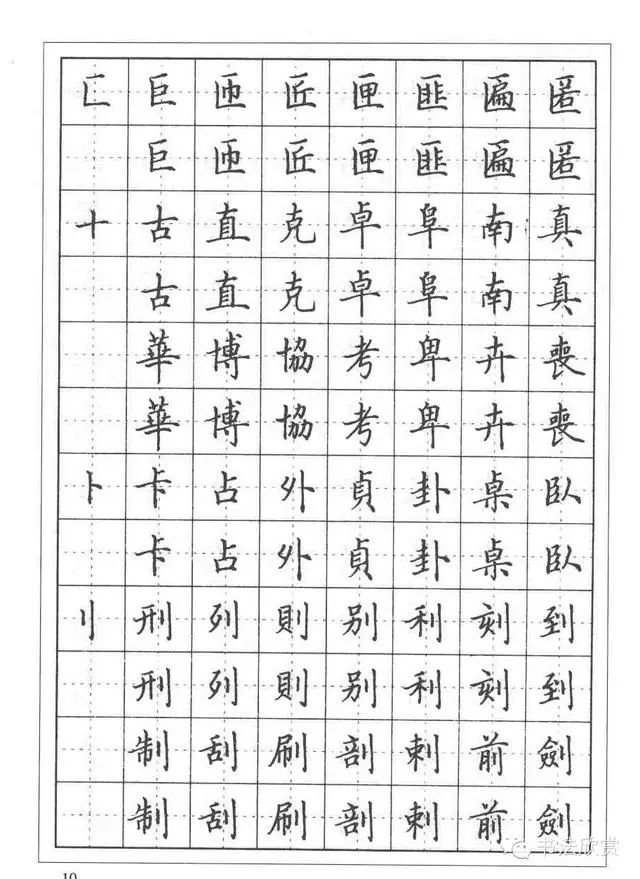 匚 巨 匝 匠 匣 匪 匾 匿
巨 匝 匠 匣 匪 匾 匿
十 古 直 克 卓 阜 南 真
古 直 克 卓 阜 南 真
華 博 協 考 卑 卉 喪
華 博 協 考 卑 卉 喪
卜 卡 占 外 貞 卦 桌 臥
卡 占 外 貞 卦 桌 臥
刂 刑 列 則 别 利 刻 到
刑 列 則 别 利 刻 到
制 刮 刷 剖 剌 前 劍
制 刮 刷 剖 剌 前 劍
书法欣赏
10